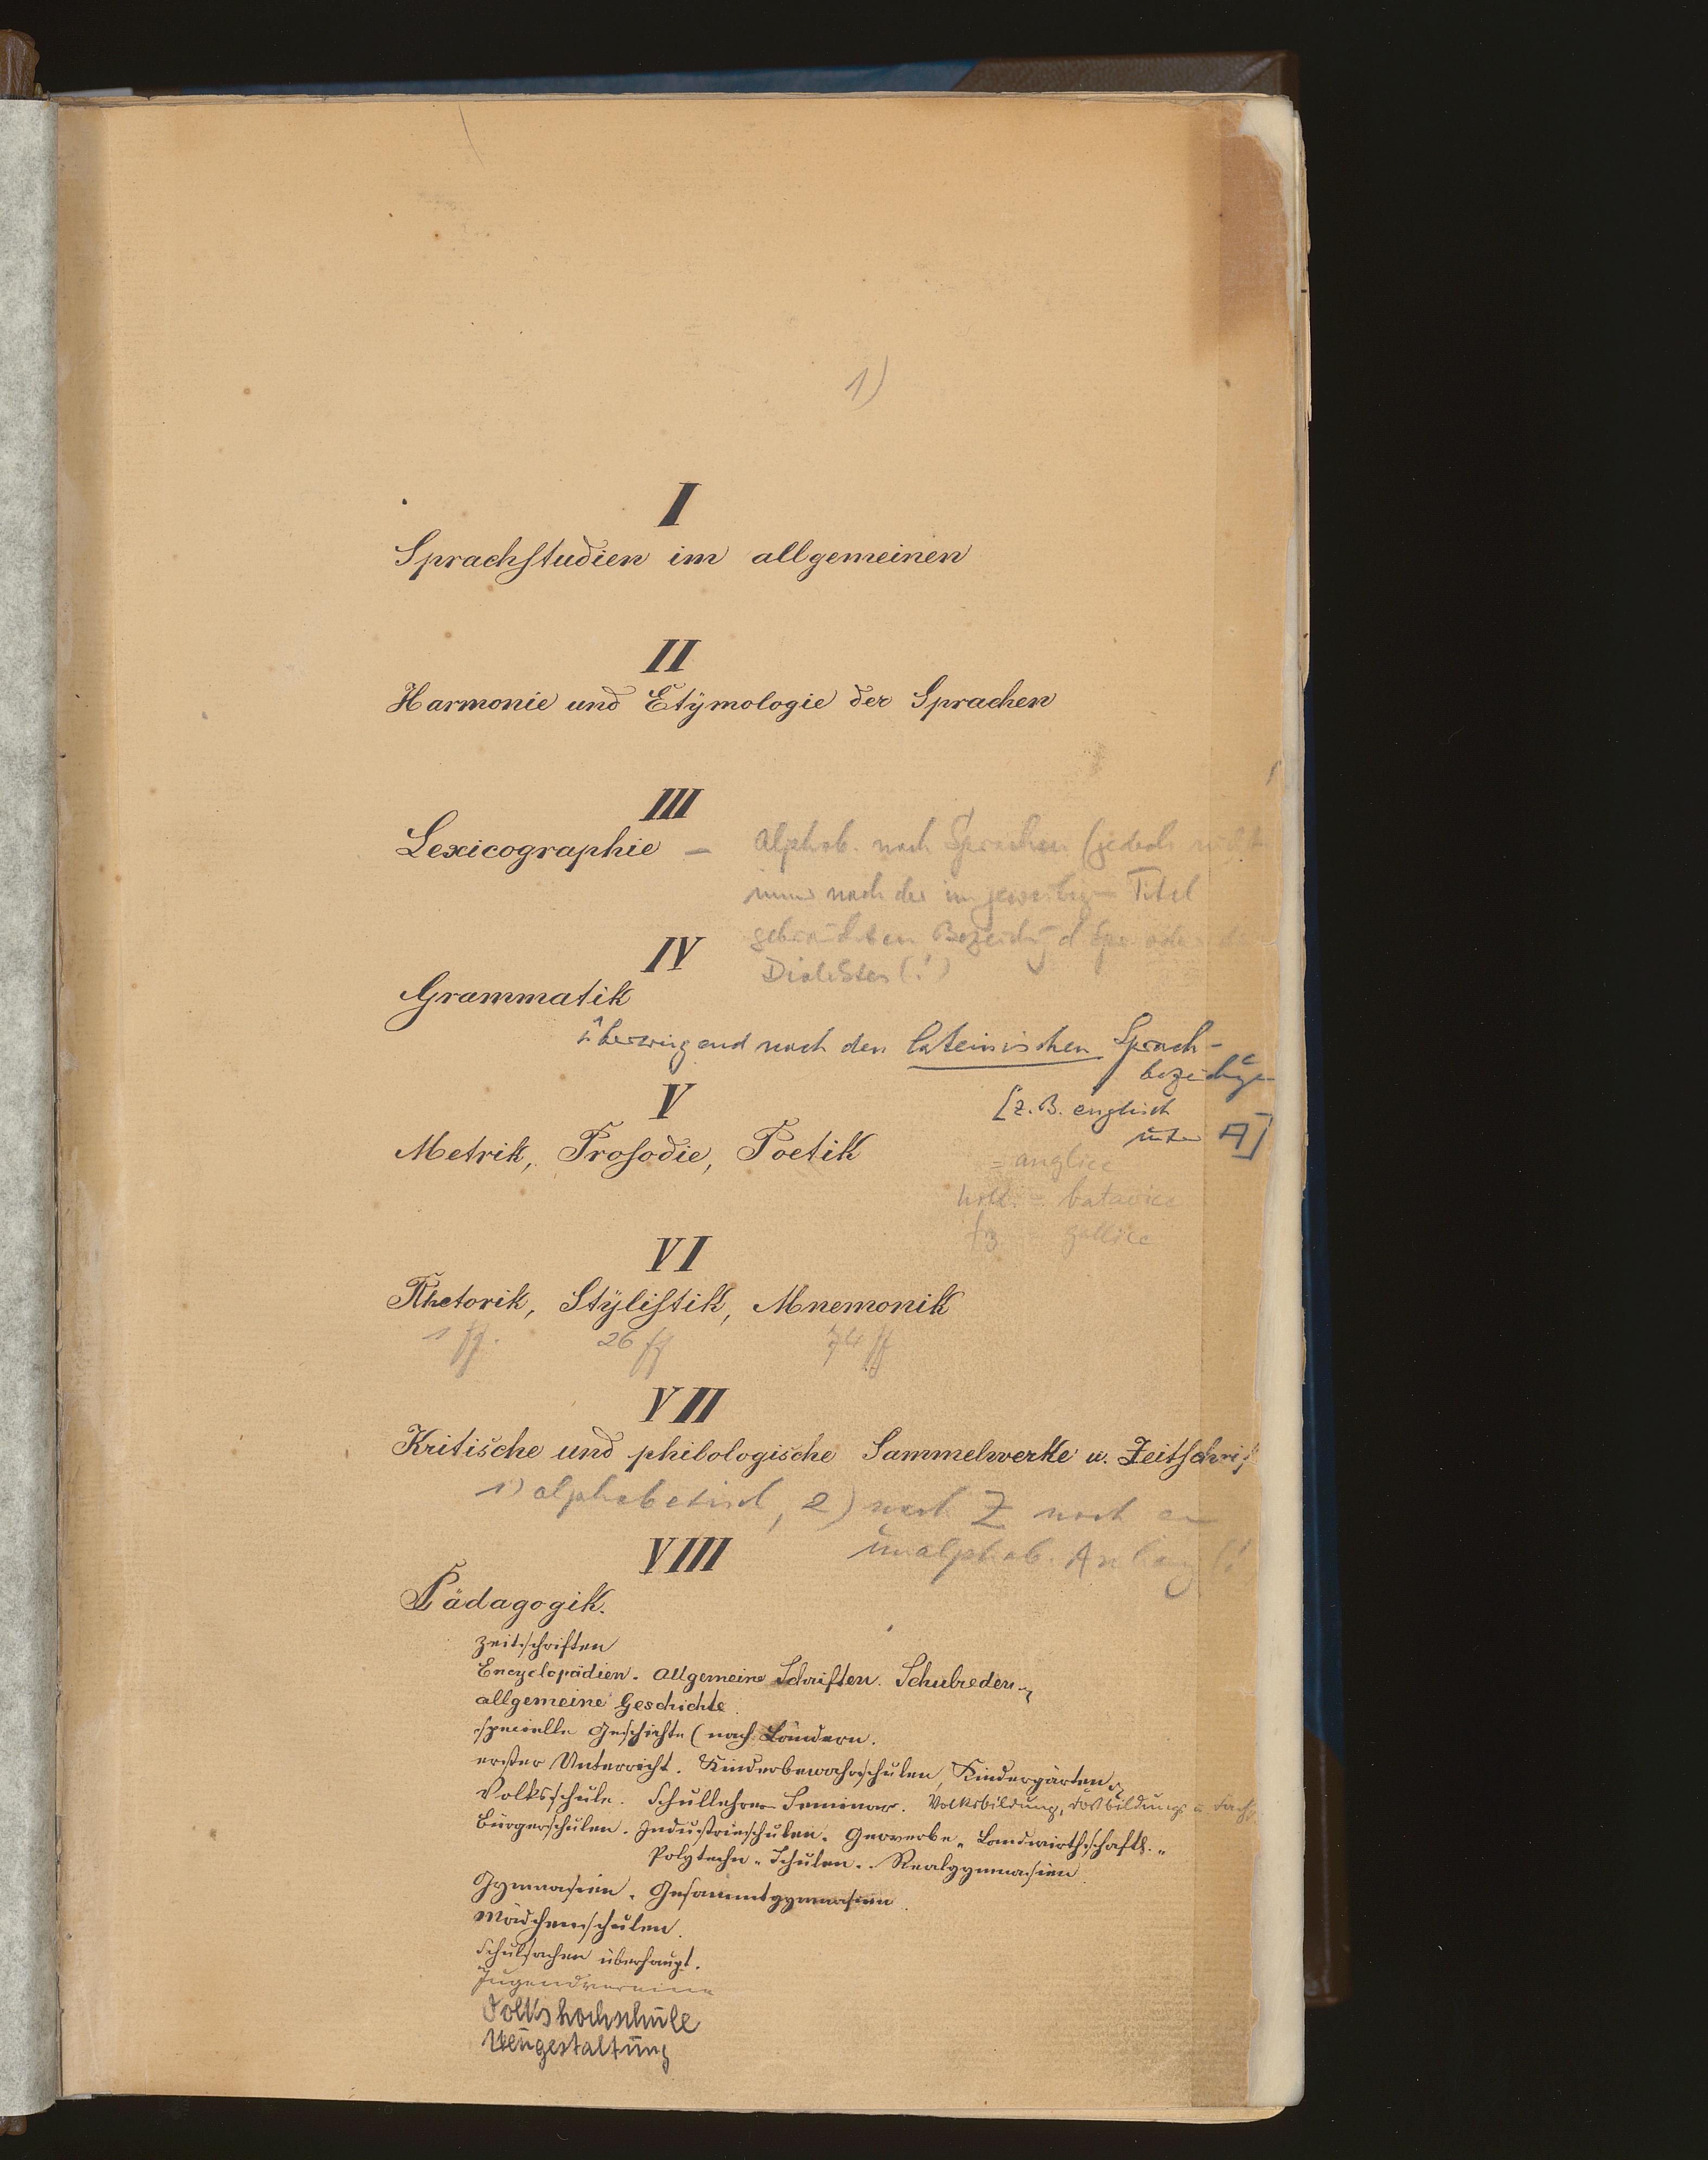 1)
I
Sprachstudien im allgemeinen
II
Harmonie und Etÿmologie der Sprachen
III
Lexicographie – Alphab. nach Sprachen (jedoch nicht
immer nach der im jeweilig Titel
gebrauchten Bezeichg d Spr oder
Dialektes (!)
IV
Grammatik
überwiegend nach den lateinischen Sprach-
bezeichgen
[z. B. englisch
unter A]
V
Metrik, Prosodie, Poetik
= anglice
holl. = batavice
frz = gallice
VI
Rhetorik, Stÿlistik, Mnemonik
1 ff. 26 ff 74 ff
VII
Kritische und philologische Sammelwerke u. Zeitschrif
1) alphabetisch, 2) nach Z noch ein
unalphab. Anhang (!
VIII
Pädagogik.
Zeitschriften
Encyclopädien. Allgemeine Schriften. Schulreden
allgemeine Geschichte.
specielle Geschichte (nach Ländern.
erster Unterricht. Kinderbewahrschulen, Kindergärten
Volksschule. Schullehrer Seminar. Volksbildung, Fortbildungs u. Fach
Bürgerschulen. Industrieschulen. Gewerbe „ Landwirthschaftl. „
Polytechn „ Schulen. Realgymnasien.
Gymnasien. Gesammtgymnasien.
Mädchenschulen.
Schulsachen überhaupt.
Jugendvereine
Volkshochschule
Neugestaltung